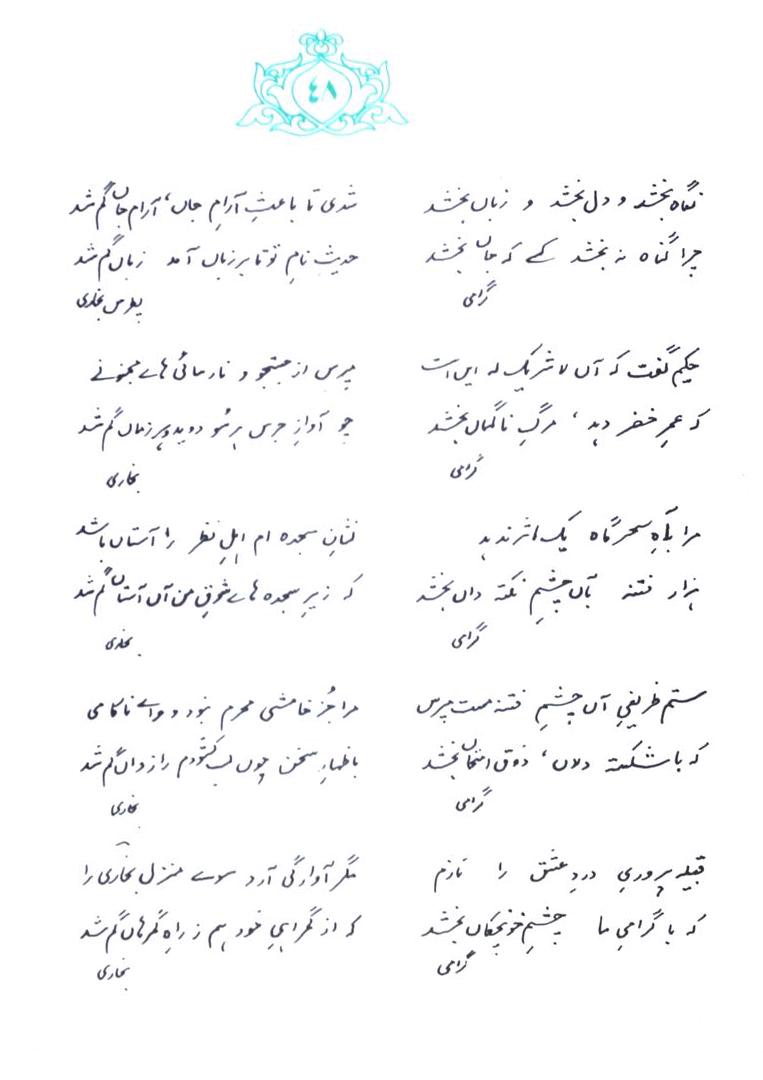 ٤٨
نگاہ بخشد و دل بخشد و زبان بخشد
چرا گناہ نہ بخشد کسے کہ جاں بخشد
گرامی
حکیم گفت کہ آں لا شریک لہ این است
کہ عمرِ خضر دہد، مرگِ ناگہاں بخشد
گرامی
مرا بآہِ سحرگاہ یک اثر ندہد
ہزار فتنہ بآں چشمِ نکتہ داں بخشد
گرامی
ستم ظریفیِ آں چشمِ فتنہ مست مپرس
کہ با شکستہ دلاں، ذوقِ امتحاں بخشد
گرامی
قبیلہ پروریِ دردِ عشق را نازم
کہ با گرامیِ ما چشمِ خونچکاں بخشد
گرامی
شدی تا باعثِ آرامِ جاں، آرامِ جاں گم شد
حدیثِ نامِ تو تا بر زباں آمد زباں گم شد
بخاری
مپرس از جستجو و نارسائی ہاے مجنونے
چو آوازِ جرس ہر سُو دوید و در زماں گم شد
بخاری
نشانِ سجدہ ام اہلِ نظر را آستاں باشد
کہ زیرِ سجدہ ہاے شوقِ من آں آستاں گم شد
بخاری
مرا جُز خامشی محرم نبود و واے ناکامی
باظہارِ سخن چوں لب کشُودم رازداں گم شد
بخاری
مگر آوارگی آرد سوے منزل بخاری را
کہ از گمراہیِ خود ہم ز راہِ گمرہاں گم شد
بخاری